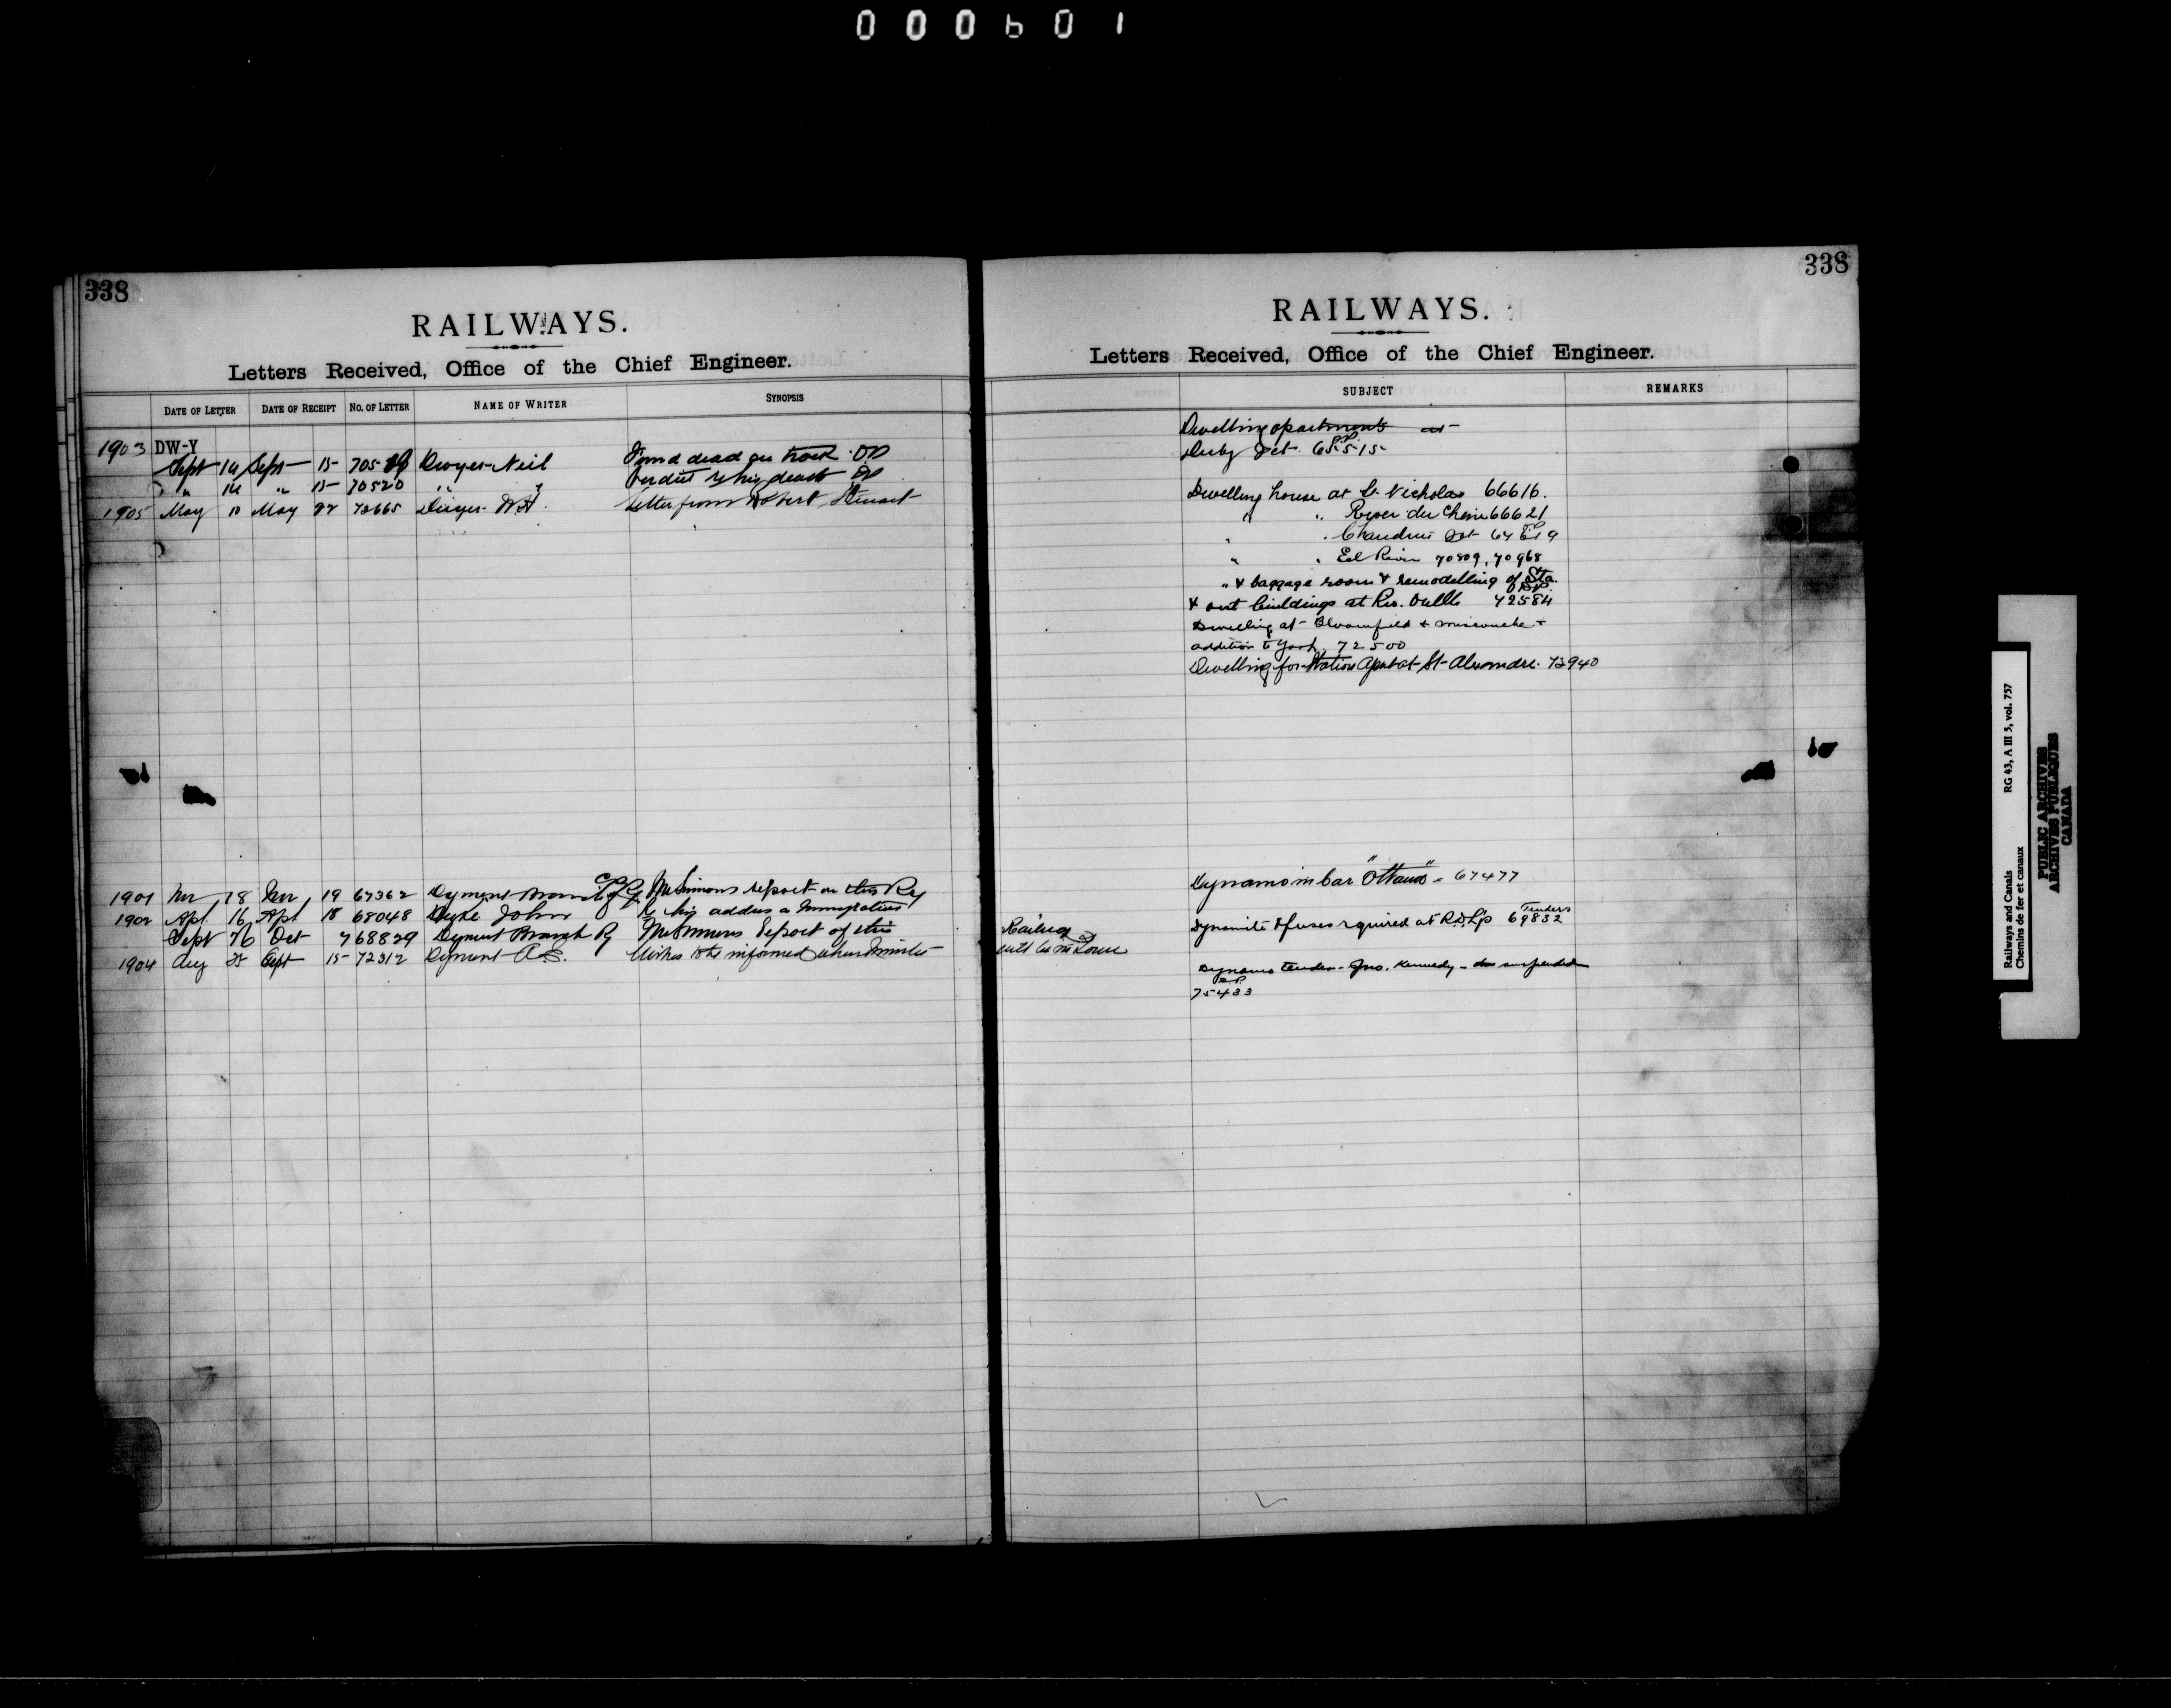 000601
338
RAILWAYS.
Letters Received, Office of the Chief Engineer.
DATE OF LETTER DATE OF RECEIPT NO. OF LETTER NAME OF WRITER SYNOPSIS
1903 DW-Y
Sept 14 Sept 15 Dwyer Neil Found dead on track DP
" 14 " 15 70520 " " Verdict re his death DP
1905 May 10 May 22 72665 Dwyer W.H. Letter from Robert Stewart
1901 Nov 18 Nov 19 67362 Dyment Branch C.P.Ry Mr Simmons report on this Ry
1902 Apl. 16 Apl 18 68048 Dyke John Re his address a Immigration
Sept 26 Oct 7 68829 Dyment Branch Ry Mr Simmons Report of this
1904 Aug 25 Sept 15 72312 Dyment A.S. Wishes to be informed when Minister
338
RAILWAYS.
Letters Received, Office of the Chief Engineer.
SUBJECT REMARKS
Dwelling apartments at
Derby Jct. 65515
Dwelling house at St. Nicholas 66616.
" " River du Chene 66621
" " Chaudiere Jct
" " Eel River 70809, 70968
" & baggage room & remodelling of Sta.
& out buildings at Riv. Ouelle 72584
Dwelling at Bloomfield & Miscouche &
addition to York, 72500
Dwelling for Station Agent at St. Alexandre. 72940
Dynamo in Car "Ottawa" 67477
Railway
will be in Town
Dynamite & fuses required at R.D.L'p Tenders 69832
Dynamo Tender - Jno. Kennedy - suspended
75433
Railways and Canals RG 43, A III 5, vol. 757
Chemins de fer et canaux
PUBLIC ARCHIVES
ARCHIVES PUBLIQUES
CANADA